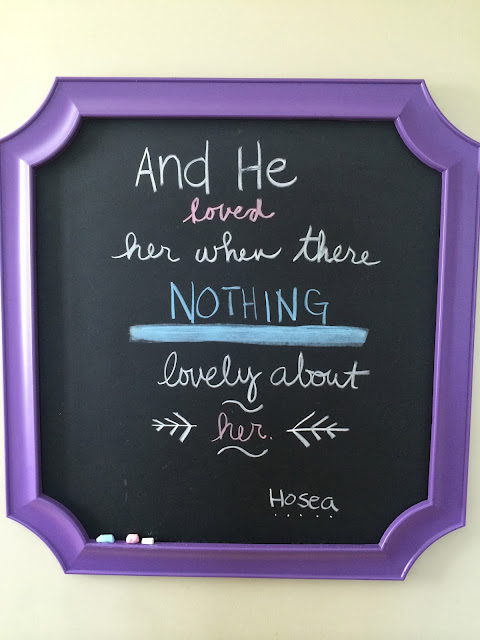 And He
loved
her when there
NOTHING
lovely about
her.
Hosea